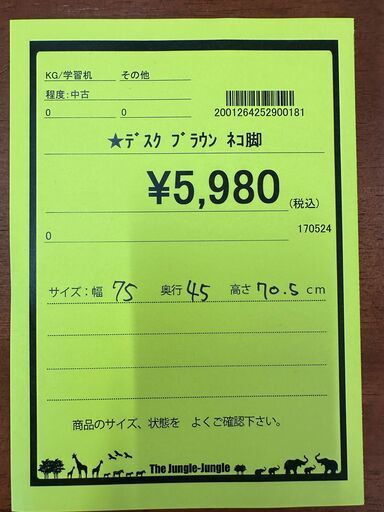 KG/学習机 その他
程度:中古
0 0 2001264252900181
★ﾃﾞｽｸ ﾌﾞﾗｳﾝ ﾈｺ脚
¥5,980 (税込)
0 170524
サイズ：幅 75 奥行 45 高さ 70.5 cm
商品のサイズ、状態を よくご確認下さい。
The Jungle-Jungle